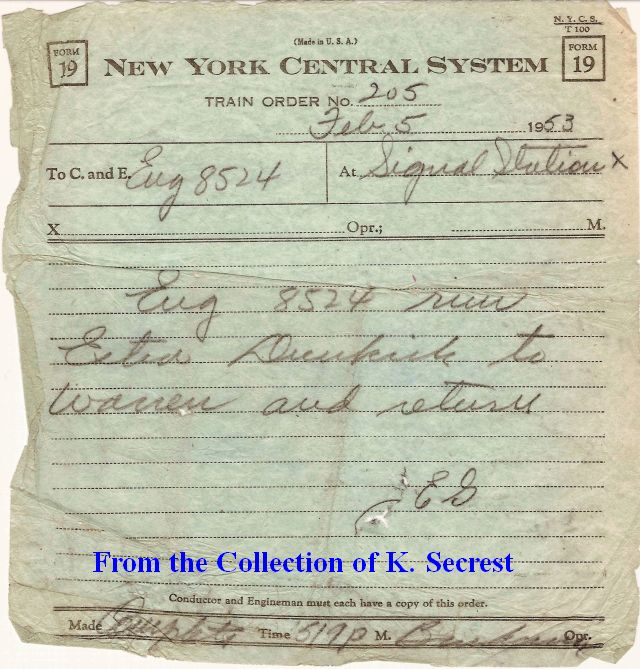 N. Y. C. S.
T 100
(Made in U. S. A.)
FORM 19 NEW YORK CENTRAL SYSTEM FORM 19
TRAIN ORDER No. 205
Feb 5 1953
To C. and E. Eng 8524 At Signal Station X
X Opr.; M.
Eng 8524 run
Extra Dunkirk to
Warren and return
EG
From the Collection of K. Secrest
Conductor and Engineman must each have a copy of this order.
Made Complete Time 519 P M. Opr.